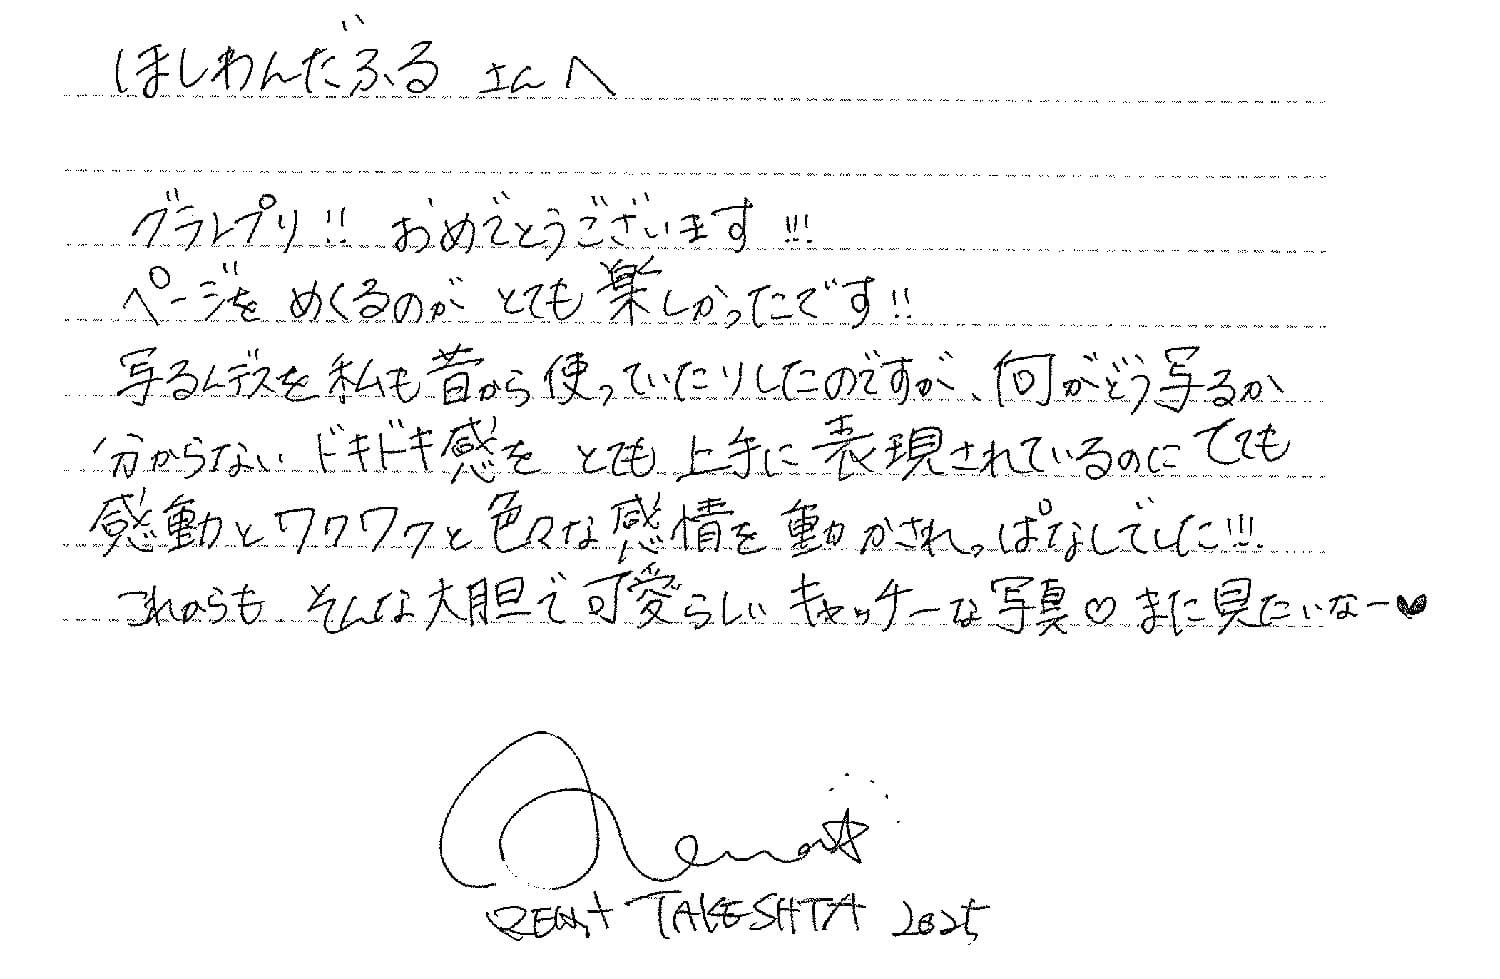 ほしわんだふる さんへ
グランプリ!! おめでとうございます!!!
ページを めくるのが とても楽しかったです!!
写ルンデスを私も昔から使っていたりしたのですが、何がどう写るか
分からない ドキドキ感を とても 上手に 表現されているのに とても
感動と ワクワクと 色々な感情を 動かされっぱなしでした!!!
これからも そんな大胆で可愛らしい キャッチーな写真♡ また見たいなー♥
TAKESHTA 2025